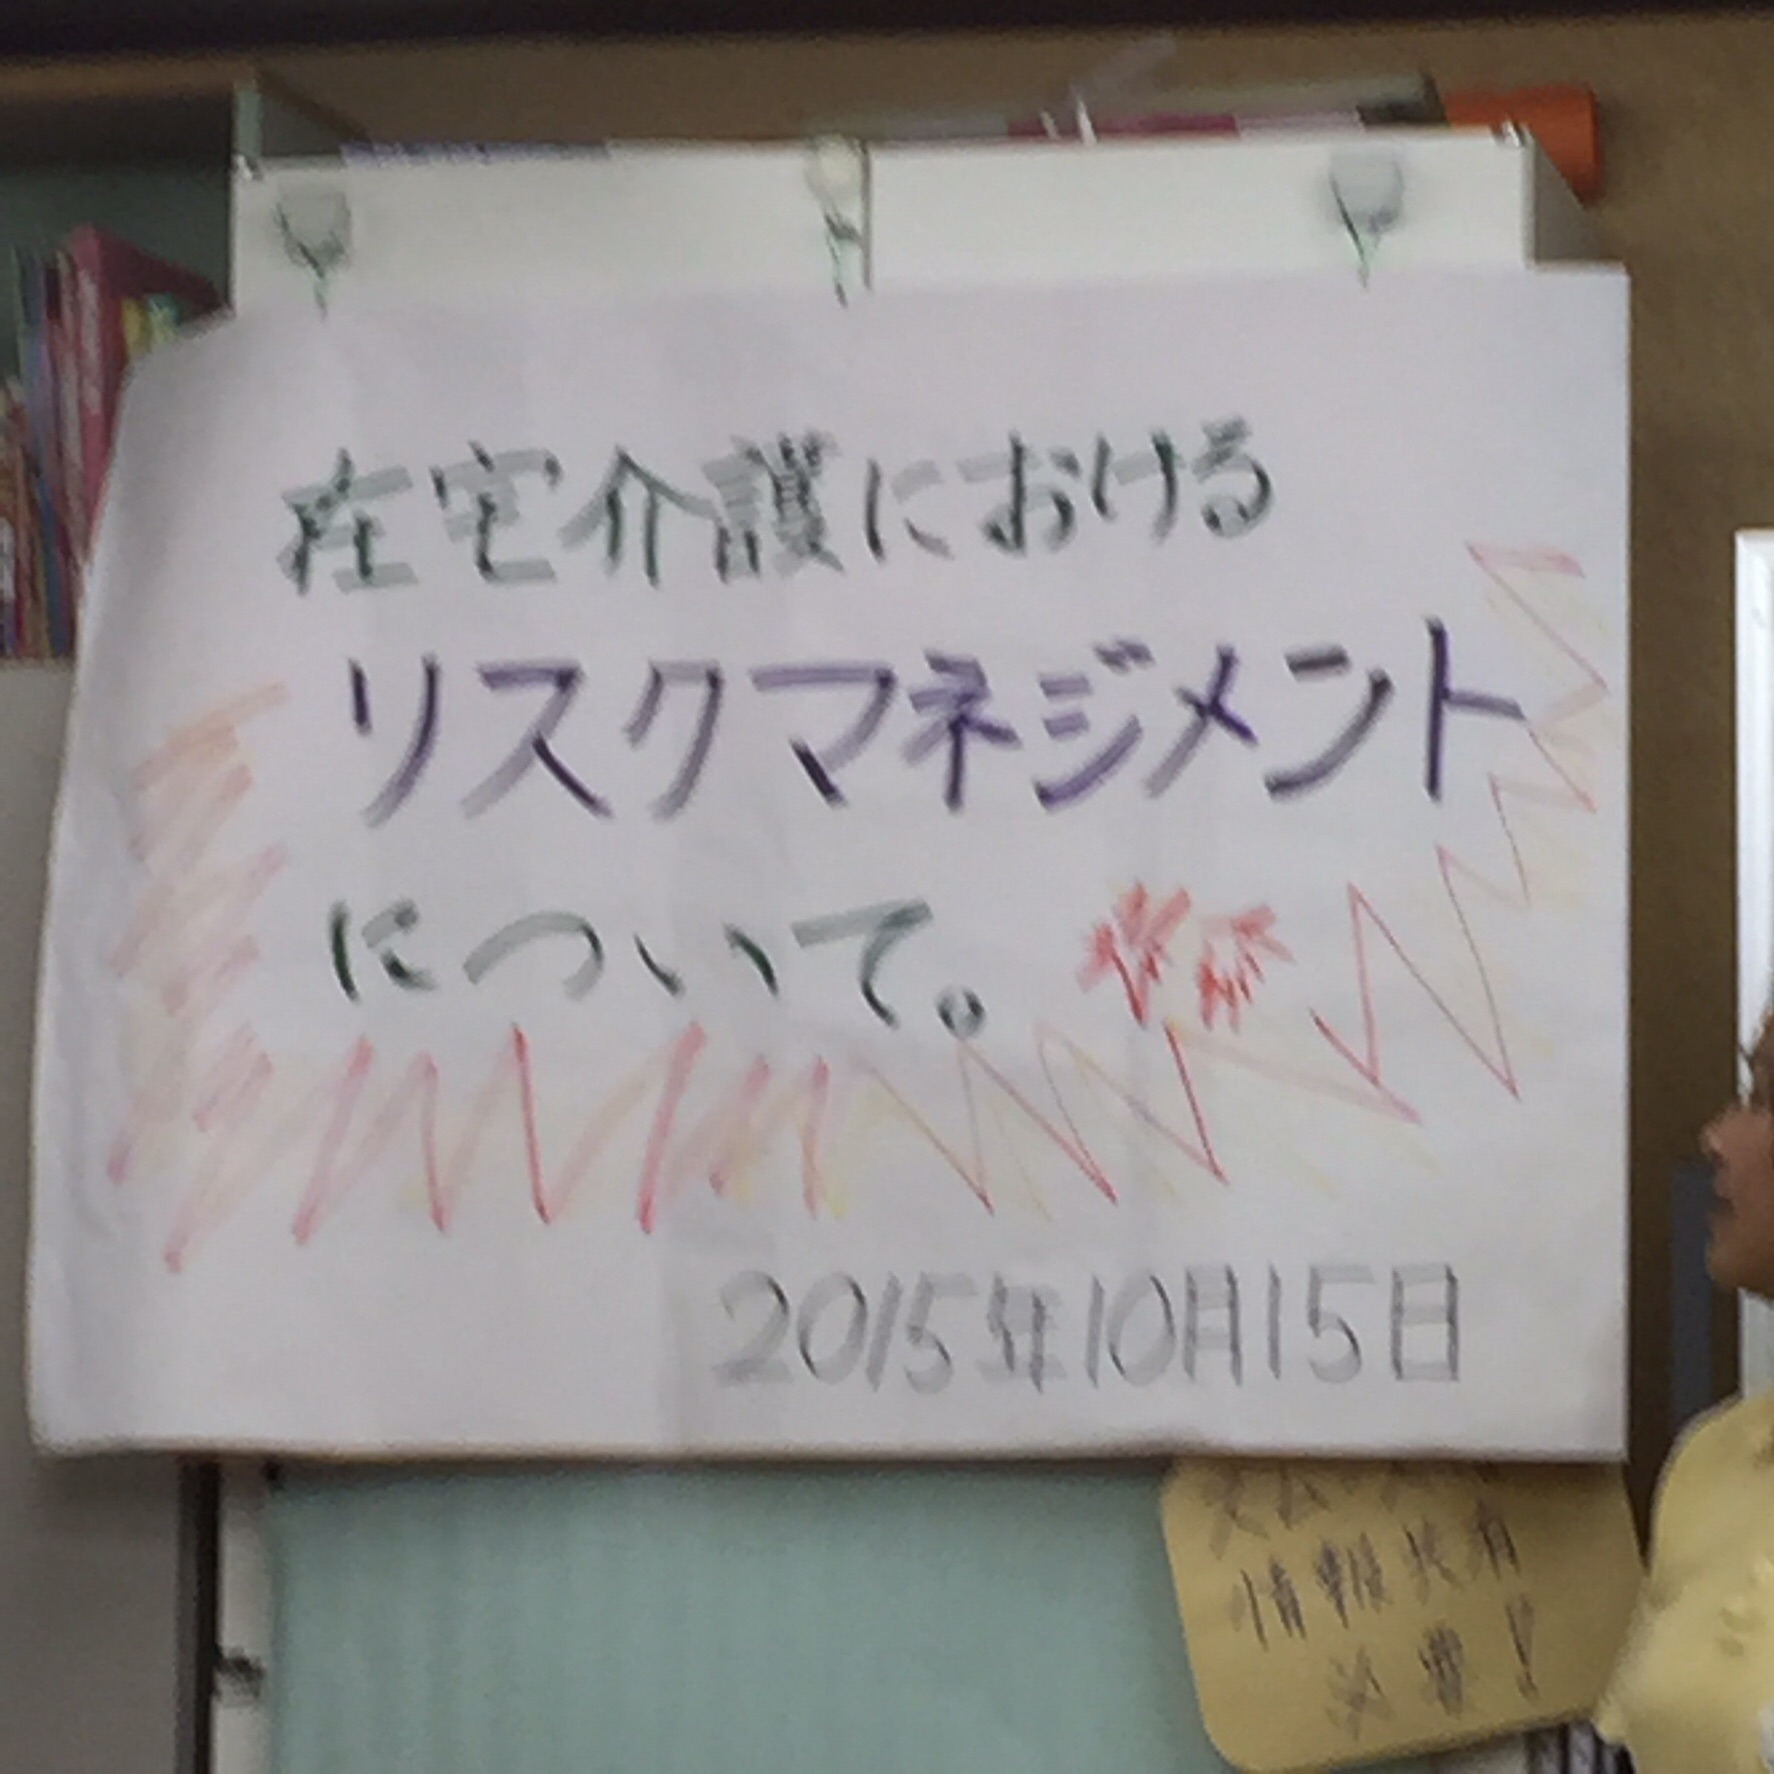 在宅介護における
リスクマネジメント
について。
2015年10月15日
情報共有
必要!